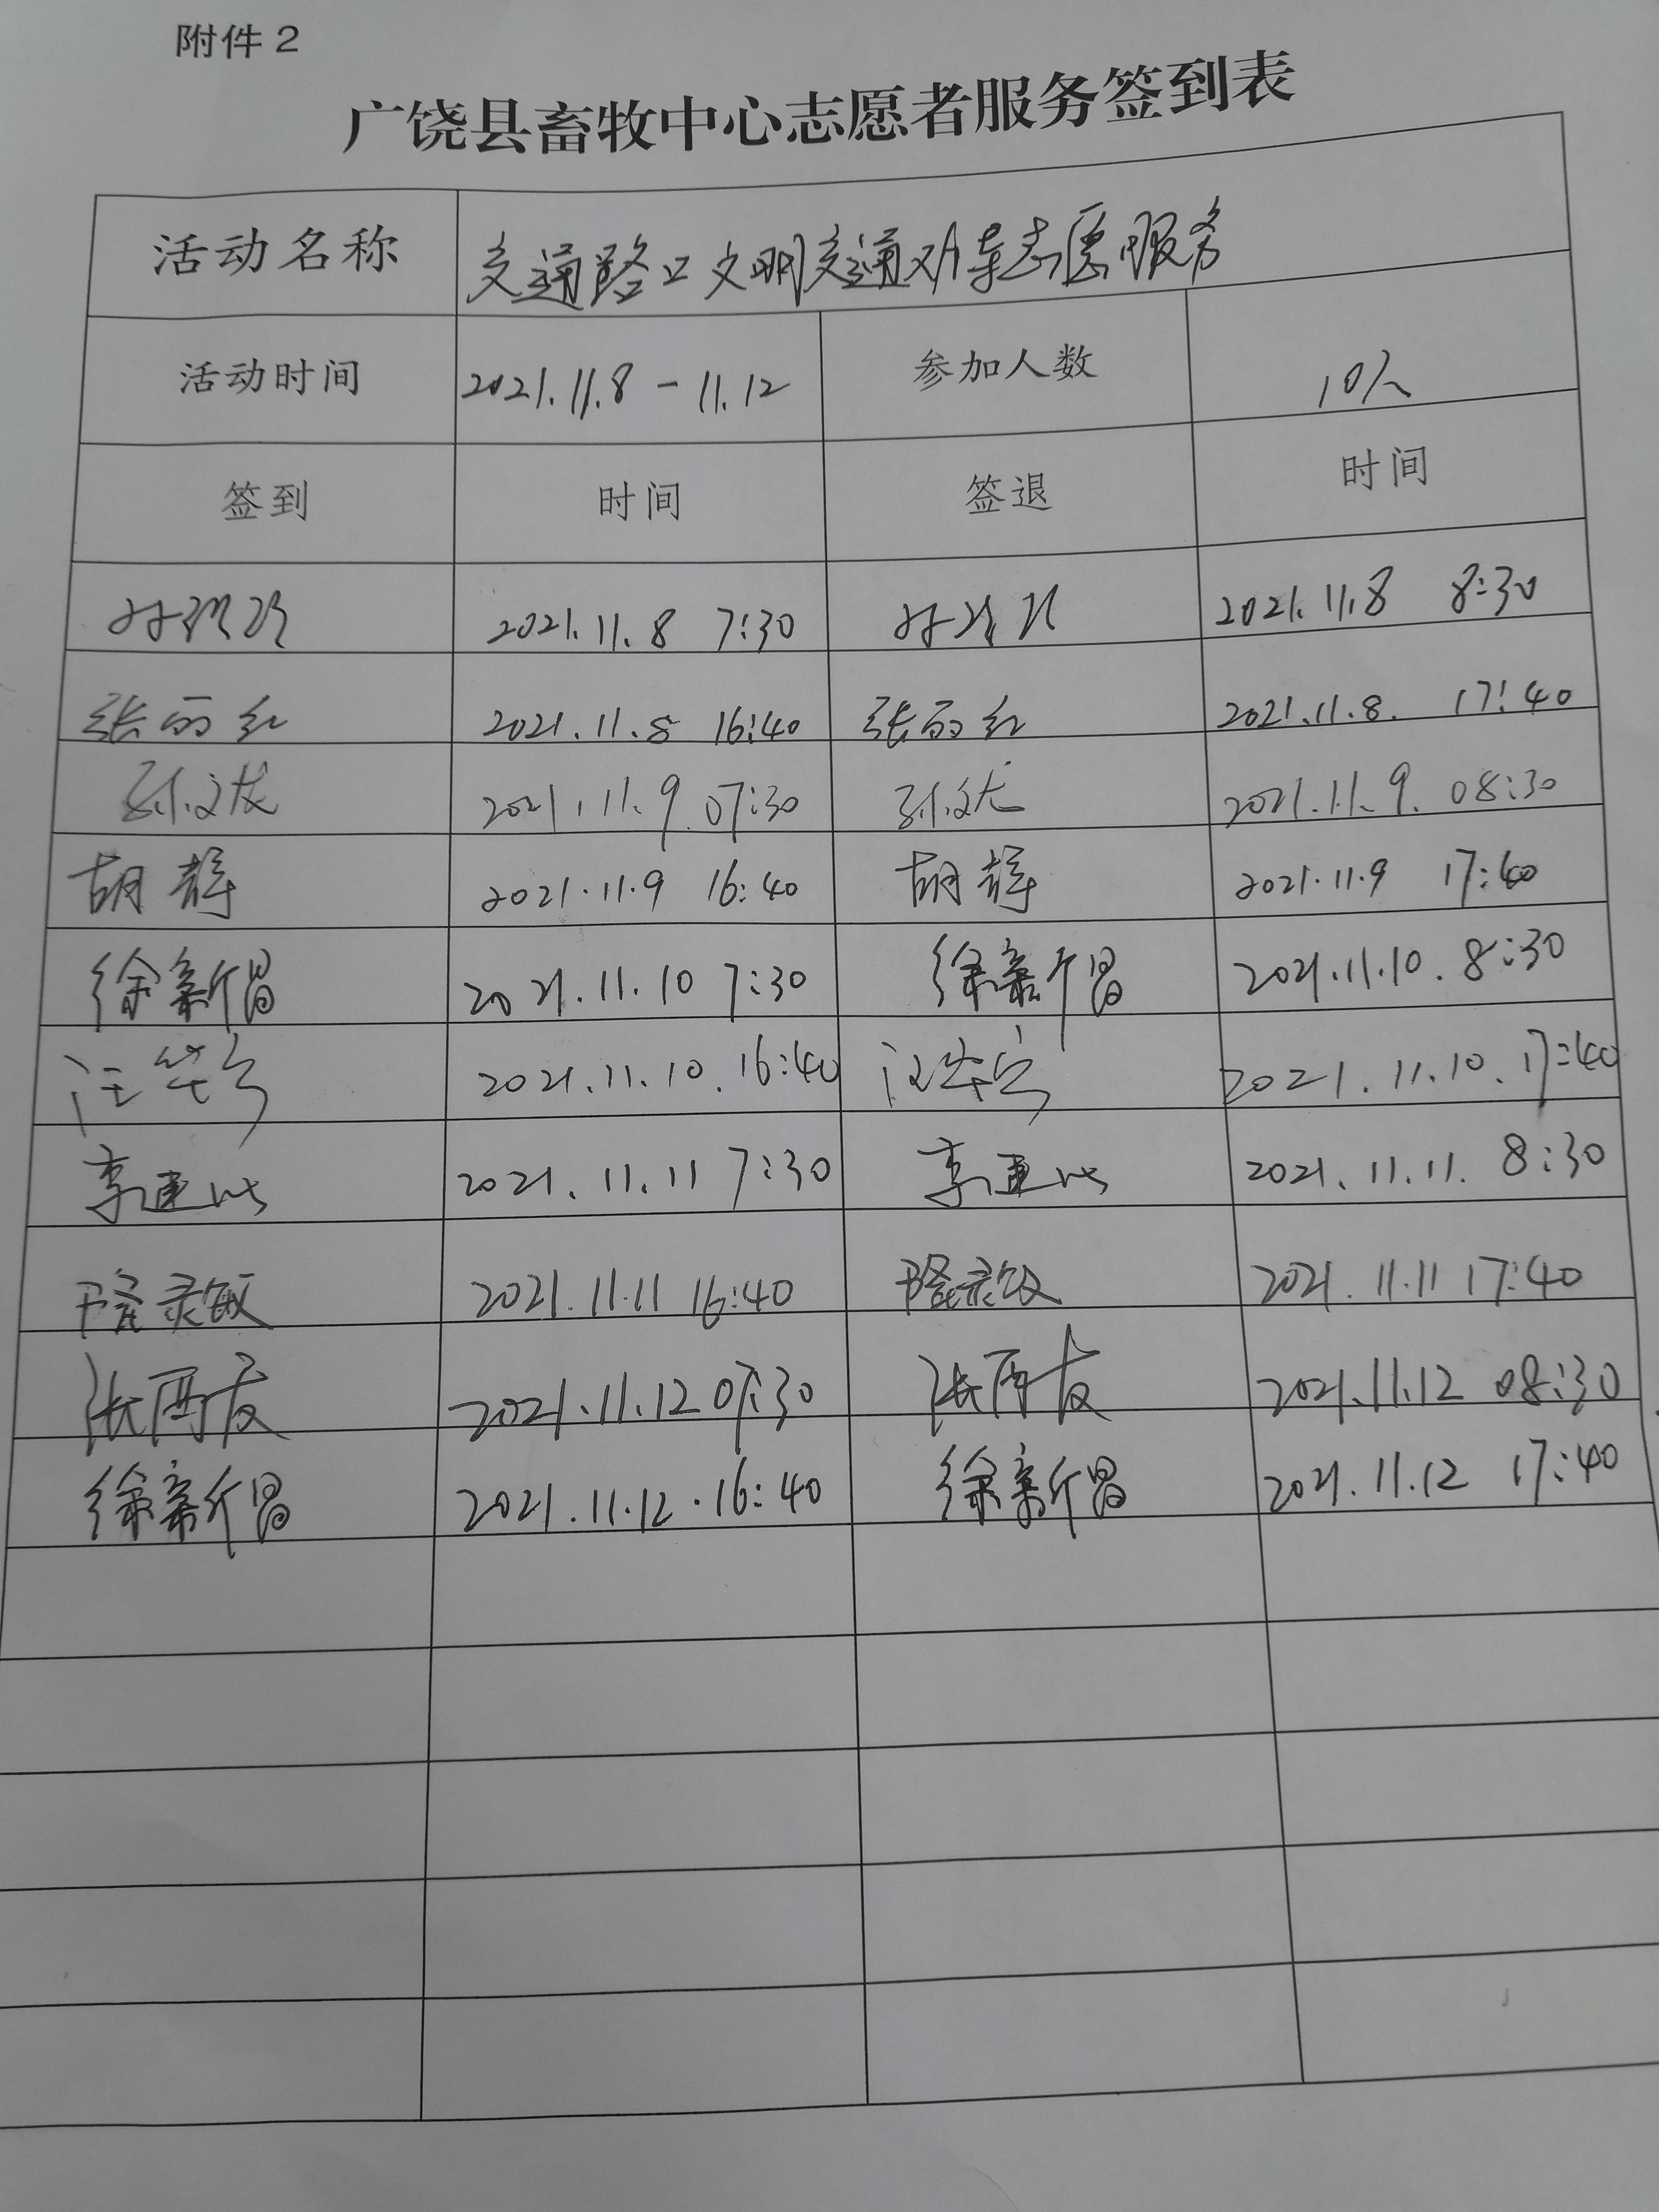 附件2
广饶县畜牧中心志愿者服务签到表
活动名称 交通路口文明交通劝导志愿服务
活动时间 2021.11.8-11.12 参加人数 10人
签到 时间 签退 时间
2021.11.8 7:30 2021.11.8 8:30
张丽红 2021.11.8 16:40 张丽红 2021.11.8. 17:40
孙文龙 2021.11.9.07:30 孙文龙 2021.11.9.08:30
胡静 2021.11.9 16:40 胡静 2021.11.9 17:40
徐新昌 2021.11.10 7:30 徐新昌 2021.11.10.8:30
2021.11.10.16:40 2021.11.10.17:40
李建 2021.11.11 7:30 李建 2021.11.11. 8:30
隆录 2021.11.11 16:40 隆录 2021.11.11 17:40
张西友 2021.11.12 07:30 张西友 2021.11.12 08:30
徐新昌 2021.11.12.16:40 徐新昌 2021.11.12 17:40